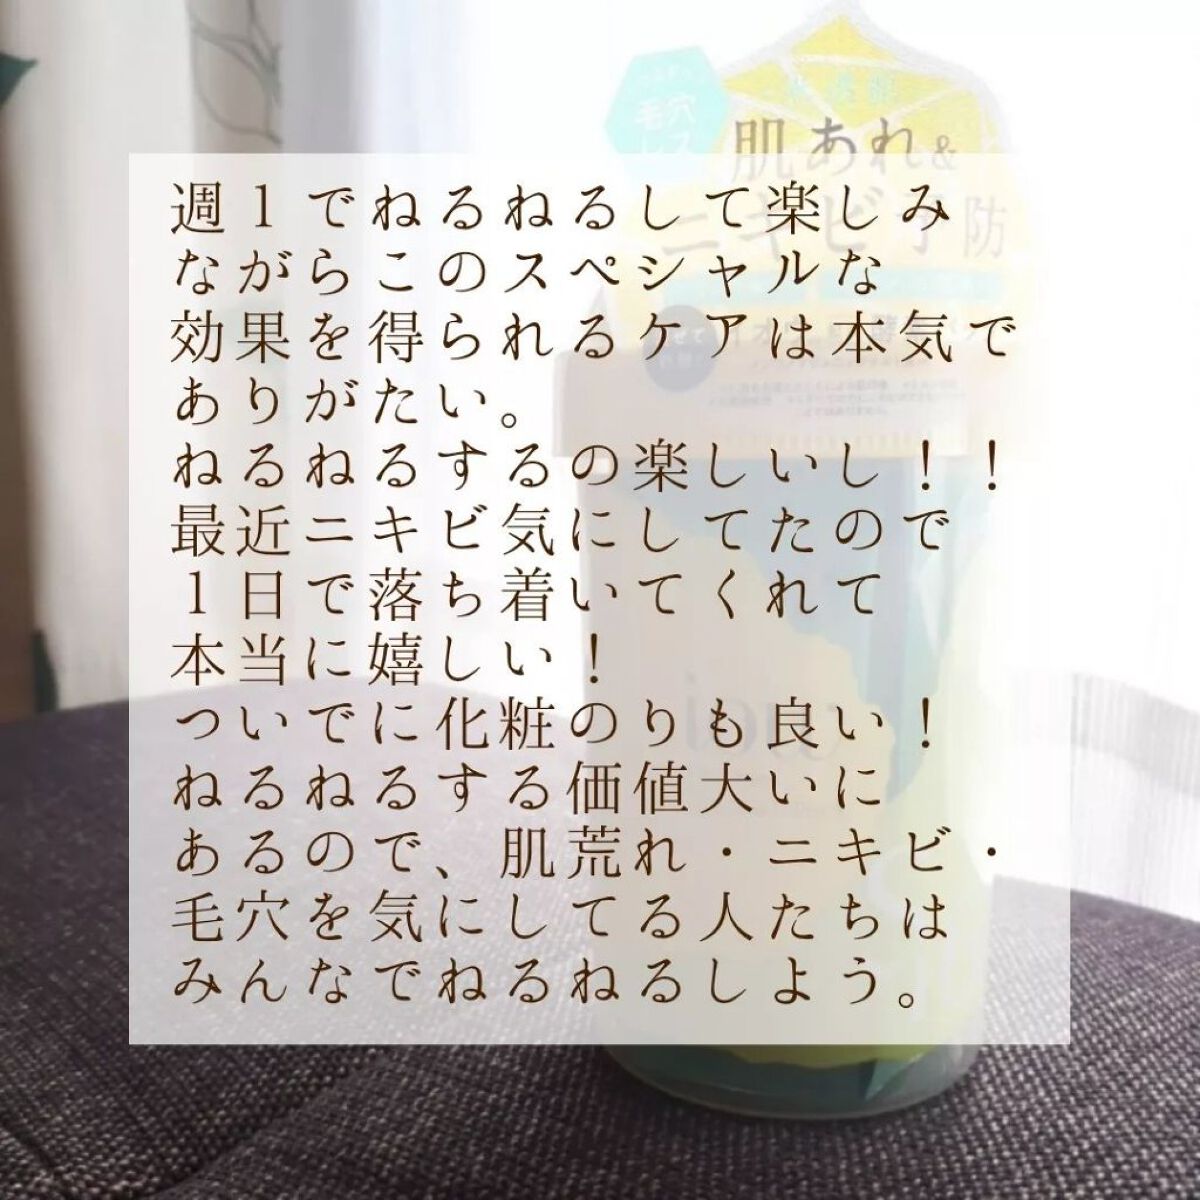 毛穴
肌あれ&
ニキビ予防
週1でねるねるして楽しみ
ながらこのスペシャルな
効果を得られるケアは本気で
ありがたい。
ねるねるするの楽しいし！！
最近ニキビ気にしてたので
1日で落ち着いてくれて
本当に嬉しい！
ついでに化粧のりも良い！
ねるねるする価値大いに
あるので、肌荒れ・ニキビ・
毛穴を気にしてる人たちは
みんなでねるねるしよう。